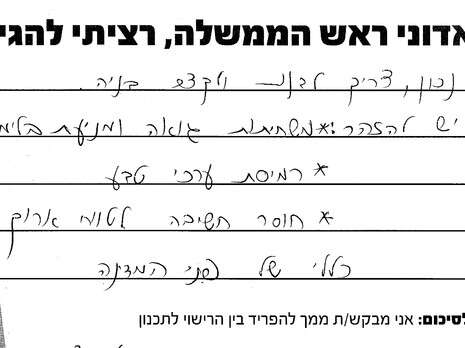 אדוני ראש הממשלה, רציתי להגי
נכון, צריך לבנות ולקדם בניה.
יש להזהר: * משחיתות גואה ומניעת בלימ
* רמיסת ערכי טבע
* חוסר חשיבה לטווח ארוך
כללי של פני המדינה
לסיכום: אני מבקש/ת ממך להפריד בין הרישוי לתכנון